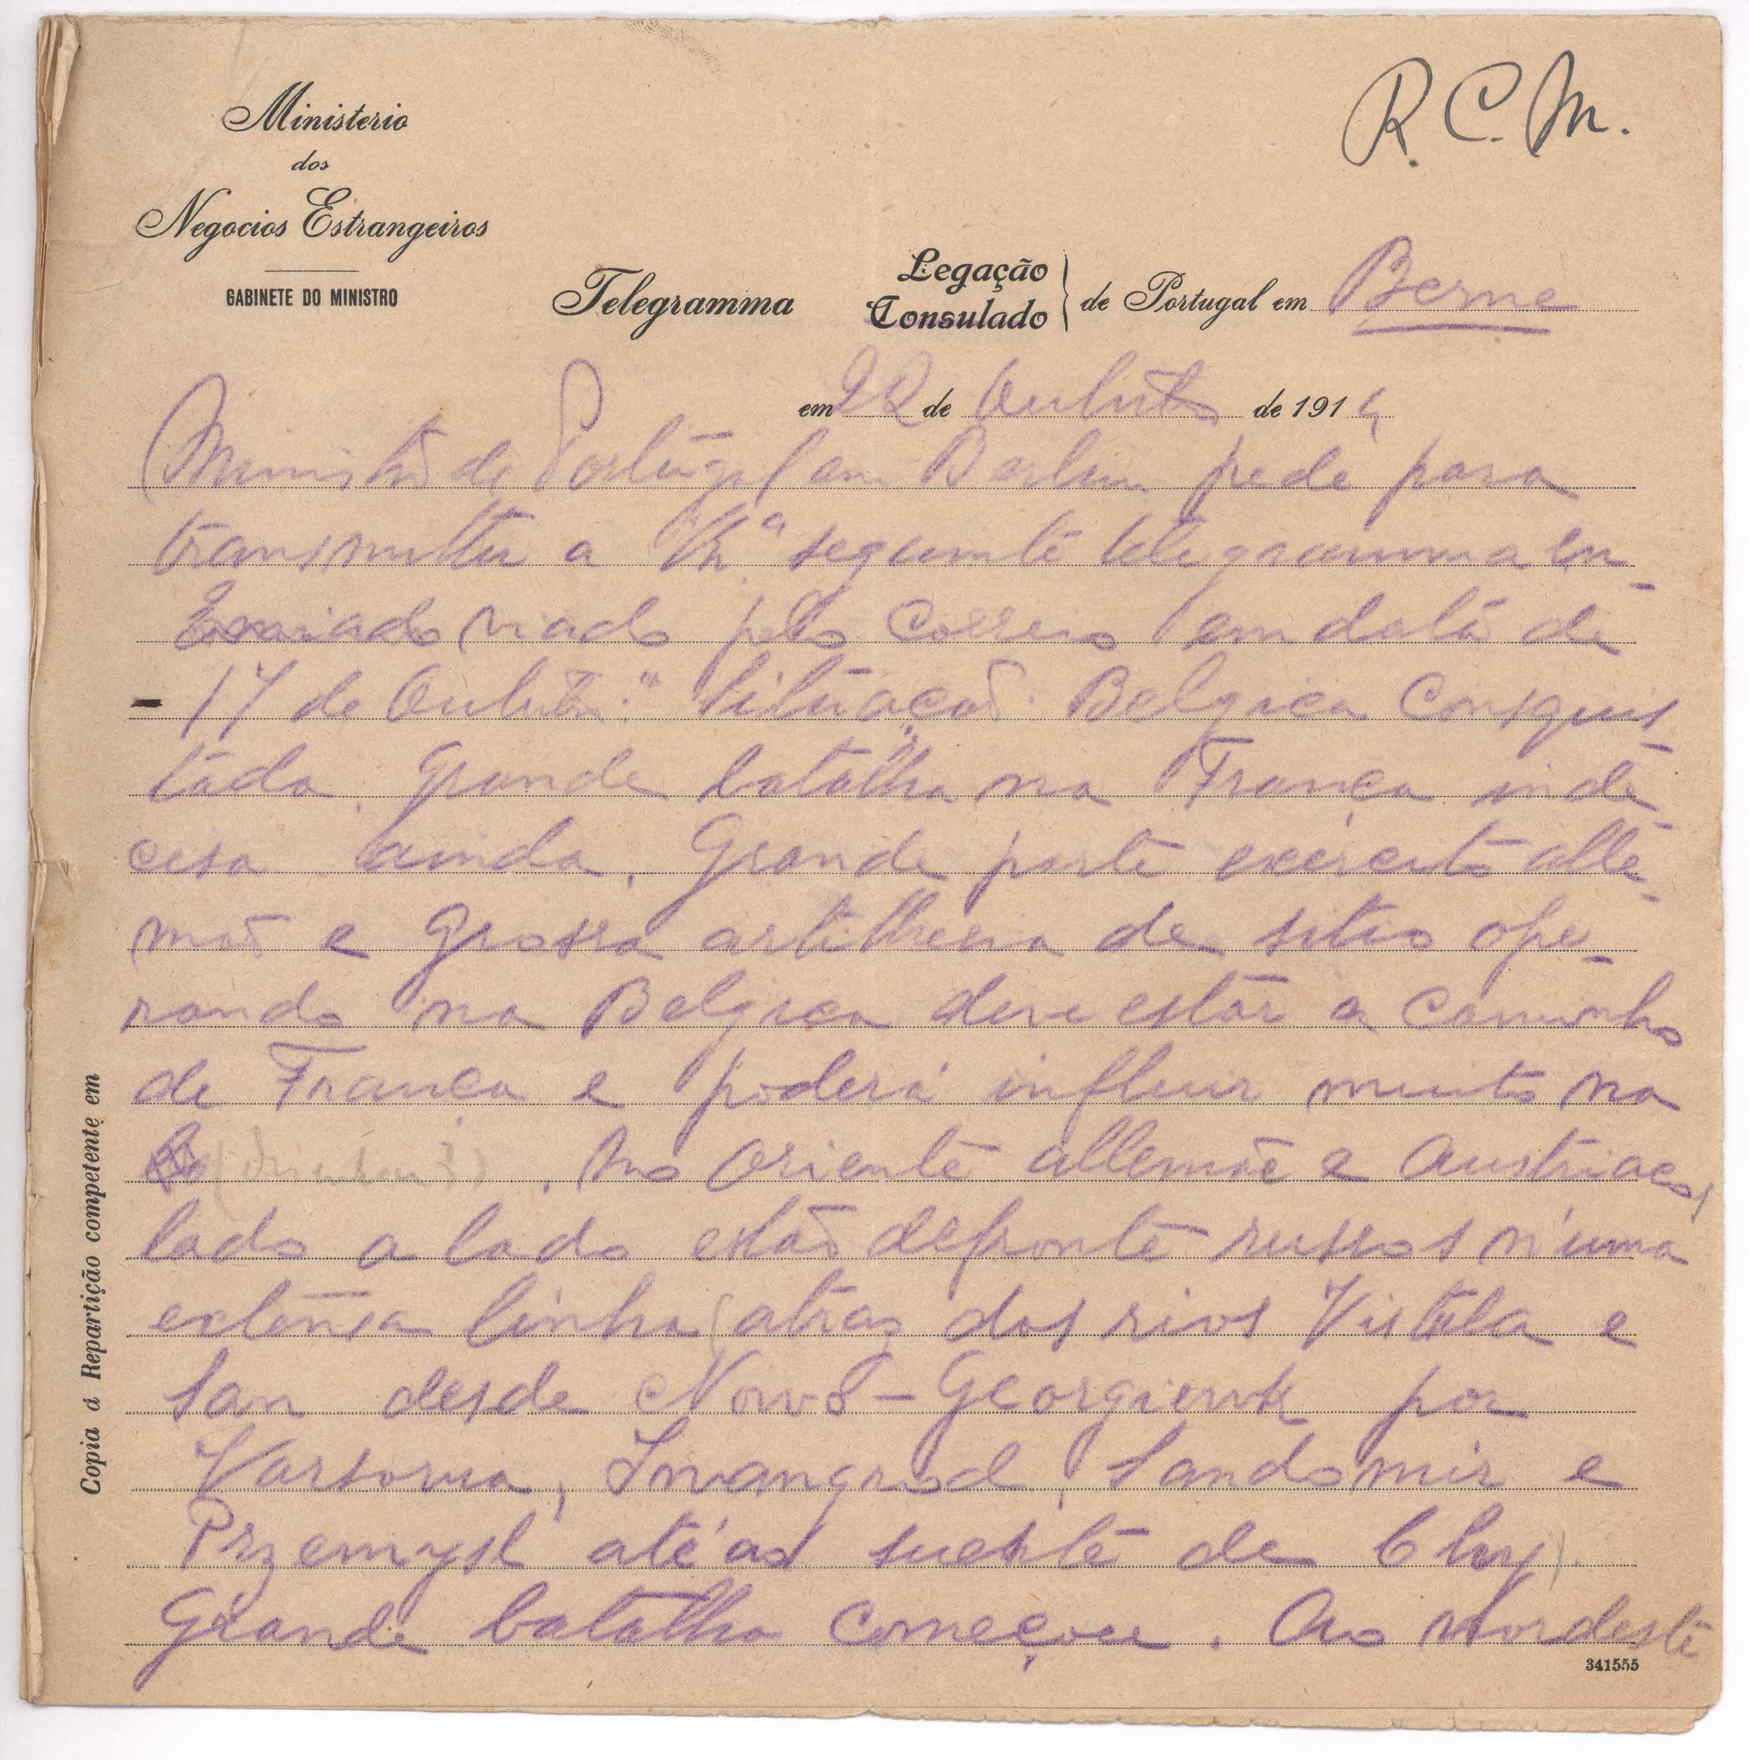 R. C. M.
Ministerio
dos
Negocios Estrangeiros
GABINETE DO MINISTRO
Telegramma
Legação
Consulado
de Portugal em Berne
em 22 de Outubro de 1914
Ministro de Portugal em Berlim pede para
transmittir a V. Ex.ª seguinte telegramma en-
viado pelo correio em data de
- 17 de Outubro: "Situação: Belgica conquis-
tada. Grande batalha na França inde-
cisa ainda. Grande parte exercito alle-
mão e grossa artilheria de sitio ope-
rando na Belgica deve estar a caminho
de França e poderá influir muito na
. No Oriente allemãe e Austriacos
lado a lado estão defronte russos n'uma
extensa linha (atraz dos rios Vistula e
San desde Novo-Georgiewsk por
Varsovia, Ivangrod, Sandomir e
Przemysl até ao sueste de
Grande batalha começou. Ao Nordeste
341555
Copia á Repartição competente em